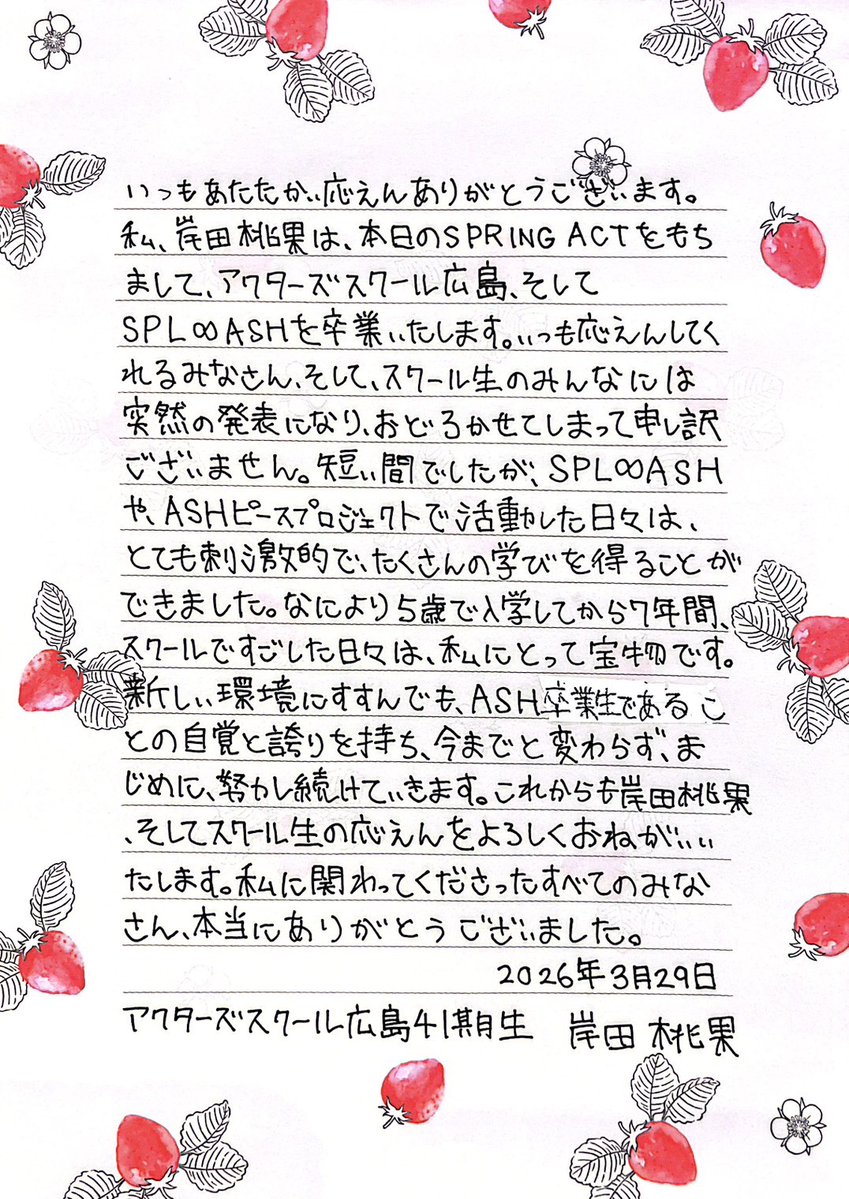 いつもあたたかい応えんありがとうございます。
私、岸田桃果は、本日のSPRING ACTをもち
まして、アクターズスクール広島、そして
SPL∞ASHを卒業いたします。いつも応えんしてく
れるみなさん、そして、スクール生のみんなには
突然の発表になり、おどろかせてしまって申し訳
ございません。短い間でしたが、SPL∞ASH
や、ASHピースプロジェクトで活動した日々は、
とても刺激的で、たくさんの学びを得ることが
できました。なにより5歳で入学してから7年間、
スクールですごした日々は、私にとって宝物です。
新しい環境にすすんでも、ASH卒業生であるこ
との自覚と誇りを持ち、今までと変わらず、ま
じめに、努力し続けていきます。これからも岸田桃果
、そしてスクール生の応えんをよろしくおねがいい
たします。私に関わってくださったすべてのみな
さん、本当にありがとうございました。
2026年3月29日
アクターズスクール広島41期生 岸田 桃果